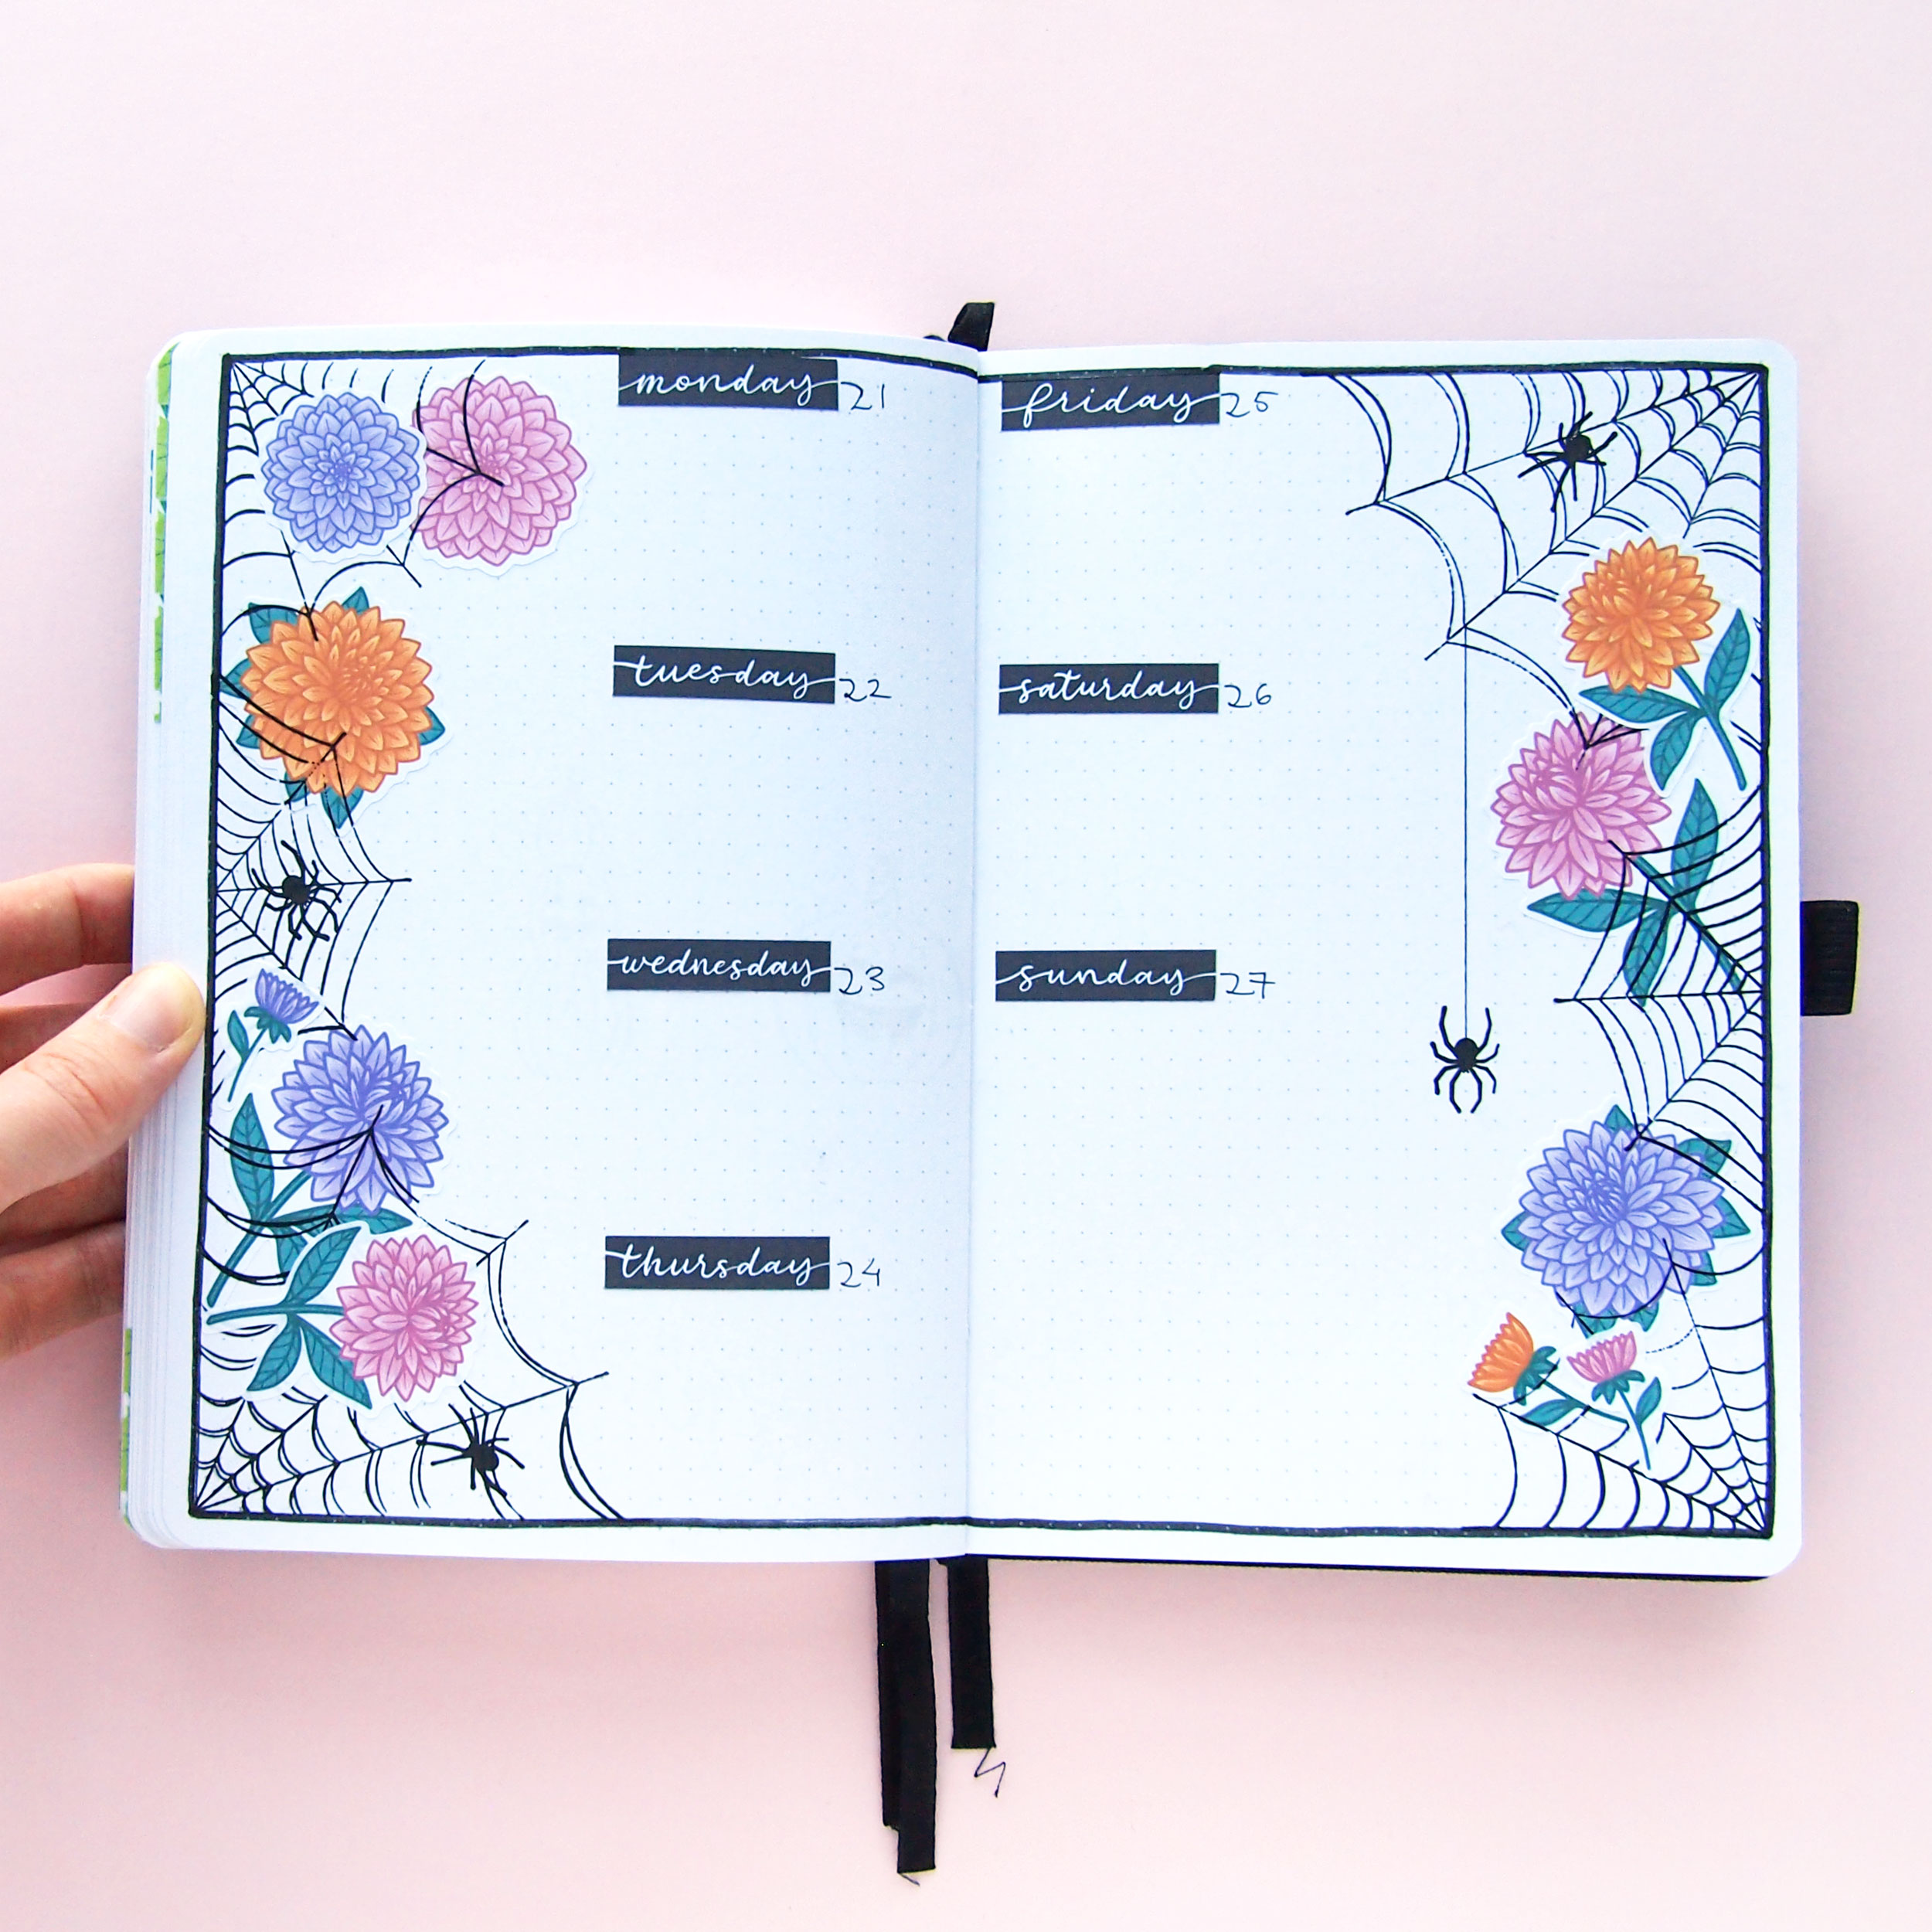 monday 21
tuesday 22
wednesday 23
thursday 24
friday 25
saturday 26
sunday 27